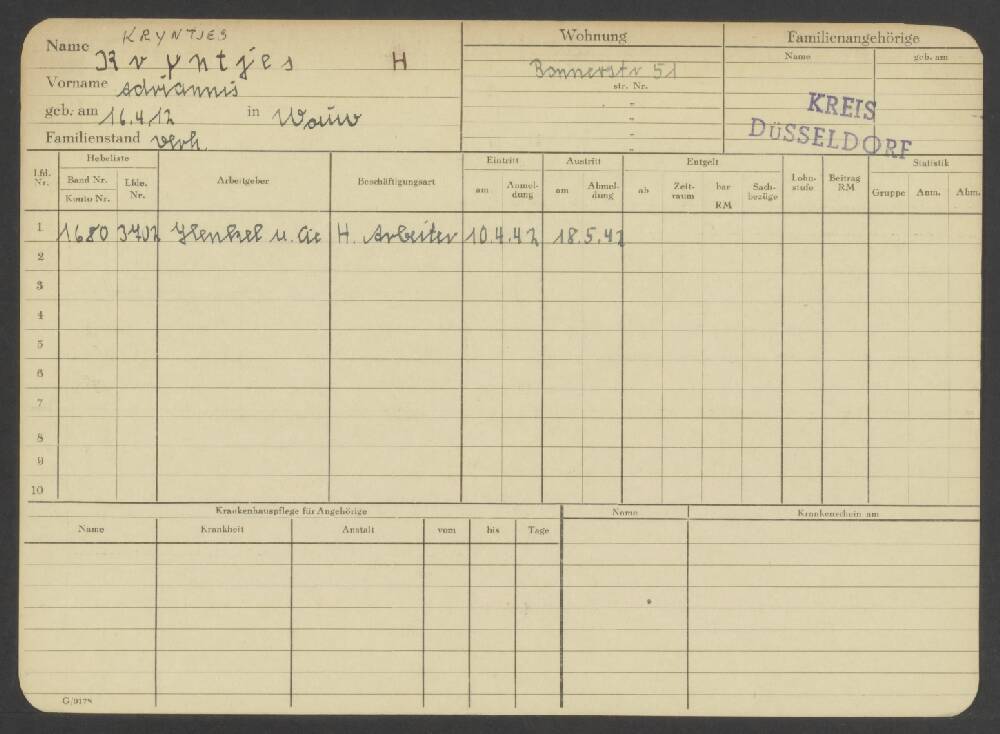 KRYNTJES
Name Kryntjes H
Vorname Adriannis
geb. am 16.4.12 in Wouw
Familienstand verh.
Wohnung
Bonnerstr 51
str. Nr.
"
"
"
"
Familienangehörige
Name geb. am
KREIS
DÜSSELDORF
Lfd. Nr. Hebeliste Arbeitgeber Beschäftigungsart Eintritt Austritt Entgelt Lohn-stufe Beitrag RM Statistik
Band Nr. Lfde. Nr. am Anmel-dung am Abmel-dung ab Zeit-raum bar RM Sach-bezüge Gruppe Anm. Abm.
Konto Nr.
1 1680 3702 Henkel u. Cie H. Arbeiter 10.4.42 18.5.42
2
3
4
5
6
7
8
9
10
Krankenhauspflege für Angehörige
Name Krankheit Anstalt vom bis Tage
Name Krankenschein am
G/0178